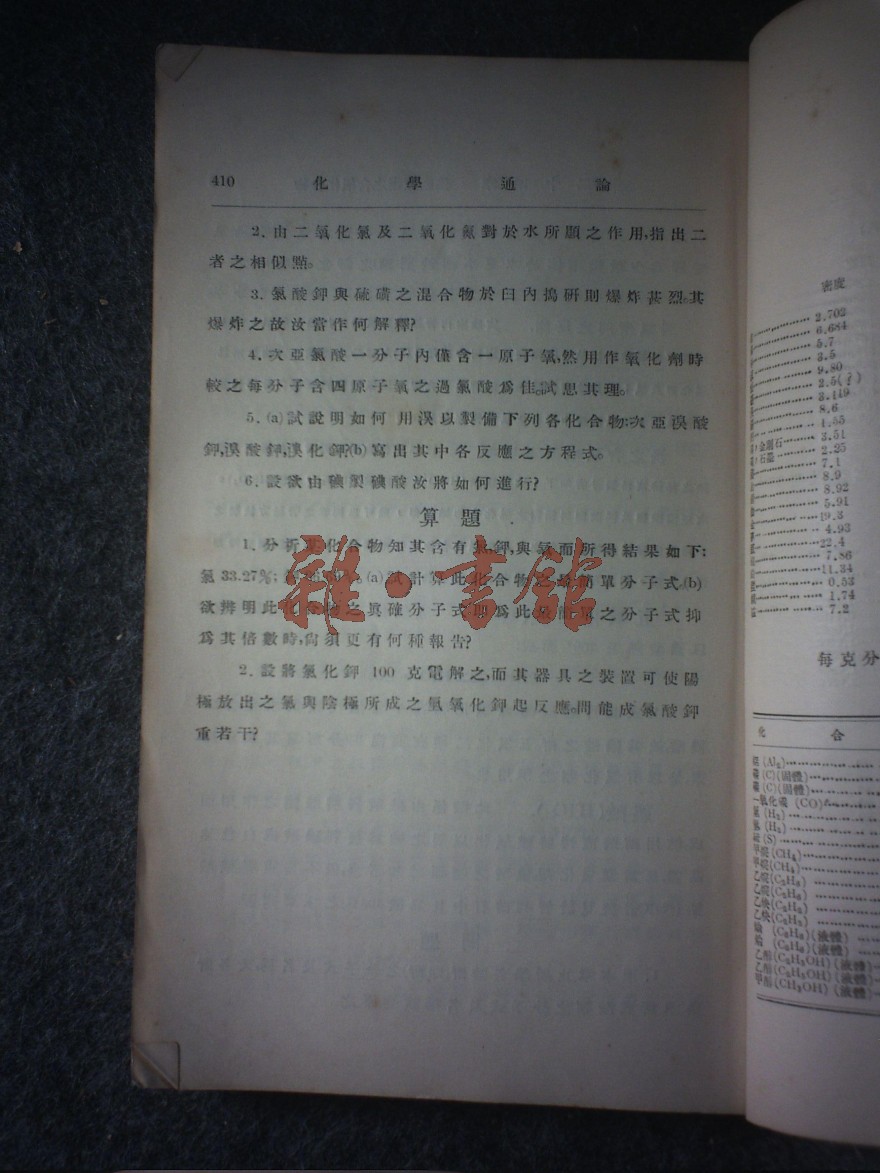 410 化學通論
2. 由二氧化氯及二氧化氮對於水所顯之作用,指出二
者之相似點。
3. 氯酸鉀與硫磺之混合物於臼內搗研則爆炸甚烈。其
爆炸之故汝當作何解釋?
4. 次亞氯酸一分子內僅含一原子氧,然用作氧化劑時
較之每分子含四原子氧之過氯酸爲佳。試思其理。
5. (a)試說明如何用溴以製備下列各化合物:次亞溴酸
鉀,溴酸鉀,溴化鉀?(b)寫出其中各反應之方程式。
6. 設欲由碘製碘酸汝將如何進行?
算題
1. 分析某化合物知其含有氯,鉀,與氧而所得結果如下:
氯33.27%; (a)試計算此化合物之最簡單分子式。(b)
欲辨明此化合物之眞確分子式即爲此最簡單之分子式抑
爲其倍數時,尙須更有何種報告?
2. 設將氯化鉀 100 克電解之,而其器具之裝置可使陽
極放出之氯與陰極所成之氫氧化鉀起反應。問能成氯酸鉀
重若干?
雜·書館
密度
2.702
6.684
5.7
3.5
9.80
2.5(?)
3.149
8.6
1.55
金剛石 3.51
石墨 2.25
7.1
8.9
8.92
5.91
19.3
4.93
22.4
7.86
11.34
0.53
1.74
7.2
每克分
化合
(Al₂)
碳(C)(固體)
碳(C)(固體)
一氧化碳 (CO)
氫(H₂)
氫(H₂)
硫(S)
甲烷(CH₄)
甲烷(CH₄)
(液體)
(液體)
乙醇(C₂H₅OH)(液體)
乙醇(C₂H₅OH)(液體)
甲醇(CH₃OH)(液體)